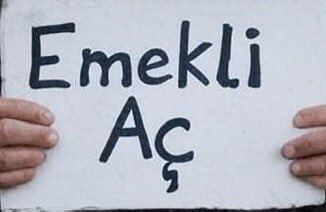 Emekli
Aç